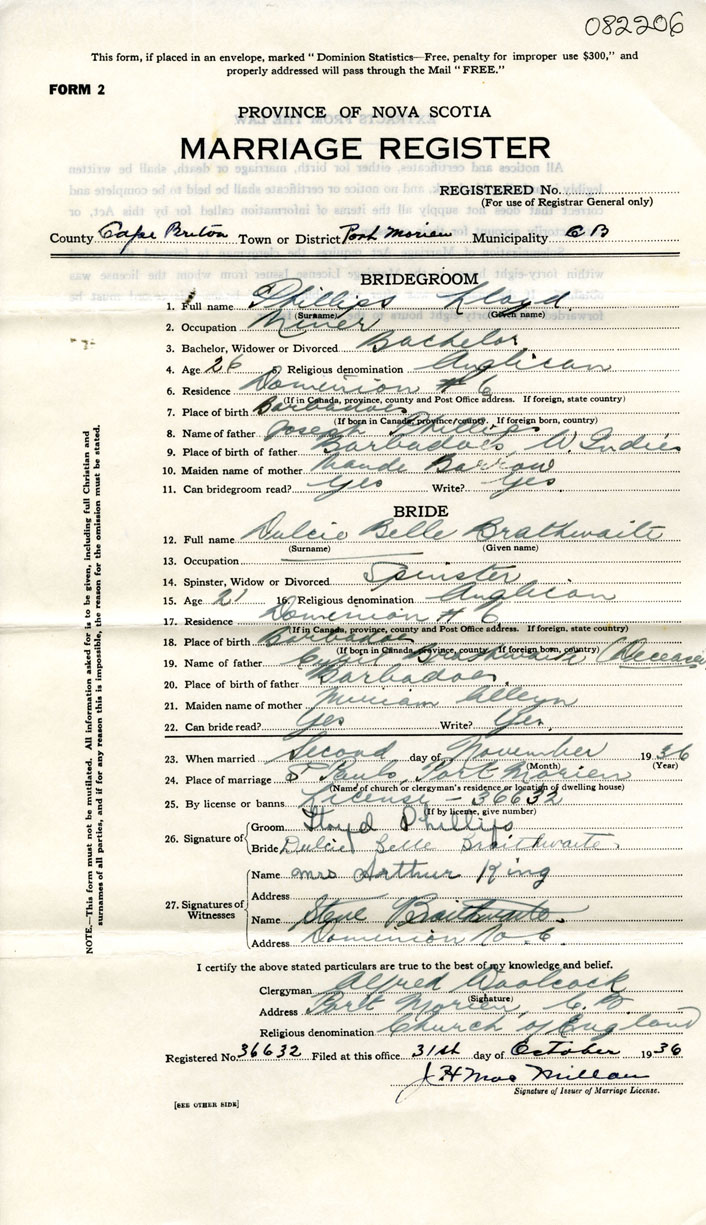 082206
This form, if placed in an envelope, marked "Dominion Statistics—Free, penalty for improper use $300," and
properly addressed will pass through the Mail "FREE."
FORM 2
PROVINCE OF NOVA SCOTIA
MARRIAGE REGISTER
REGISTERED No.
(For use of Registrar General only)
County Cape Breton Town or District Port Morien Municipality C B
BRIDEGROOM
1. Full name Phillips Lloyd
(Surname) (Given name)
2. Occupation Miner
3. Bachelor, Widower or Divorced Bachelor
4. Age 26 5. Religious denomination Anglican
6. Residence Dominion # 6
(If in Canada, province, county and Post Office address. If foreign, state country)
7. Place of birth Barbadoes
(If born in Canada, province/county. If foreign born, country)
8. Name of father Joseph Phillips
9. Place of birth of father Barbadoes, W. Indies
10. Maiden name of mother Maude Barrow
11. Can bridegroom read? Yes Write? Yes
BRIDE
12. Full name Dulcie Belle Brathwaite
(Surname) (Given name)
13. Occupation
14. Spinster, Widow or Divorced Spinster
15. Age 21 16. Religious denomination Anglican
17. Residence Dominion # 6
(If in Canada, province, county and Post Office address. If foreign, state country)
18. Place of birth Barbadoes
(If born in Canada, province, county. If foreign born, country)
19. Name of father Brathwaite (Deceased
20. Place of birth of father Barbadoes
21. Maiden name of mother Miriam Alleyn
22. Can bride read? Yes Write? Yes
23. When married Second day of November 1936
(Month) (Year)
24. Place of marriage St Pauls, Port Morien
(Name of church or clergyman's residence or location of dwelling house)
25. By license or banns License – 36632
(If by license, give number)
26. Signature of
Groom Lloyd Phillips
Bride Dulcie Belle Braithwaite
27. Signatures of Witnesses
Name Mrs Arthur King
Address
Name Steve Braithwaite
Address Dominion No. 6.
I certify the above stated particulars are true to the best of my knowledge and belief.
Clergyman Alfred Woolcock
(Signature)
Address Port Morien, C.B
Religious denomination Church of England
Registered No. 36632 Filed at this office 31st day of October 1936
J H MacMillan
Signature of Issuer of Marriage License.
[SEE OTHER SIDE]
NOTE.—This form must not be mutilated. All information asked for is to be given, including full Christian and
surnames of all parties, and if for any reason this is impossible, the reason for the omission must be stated.